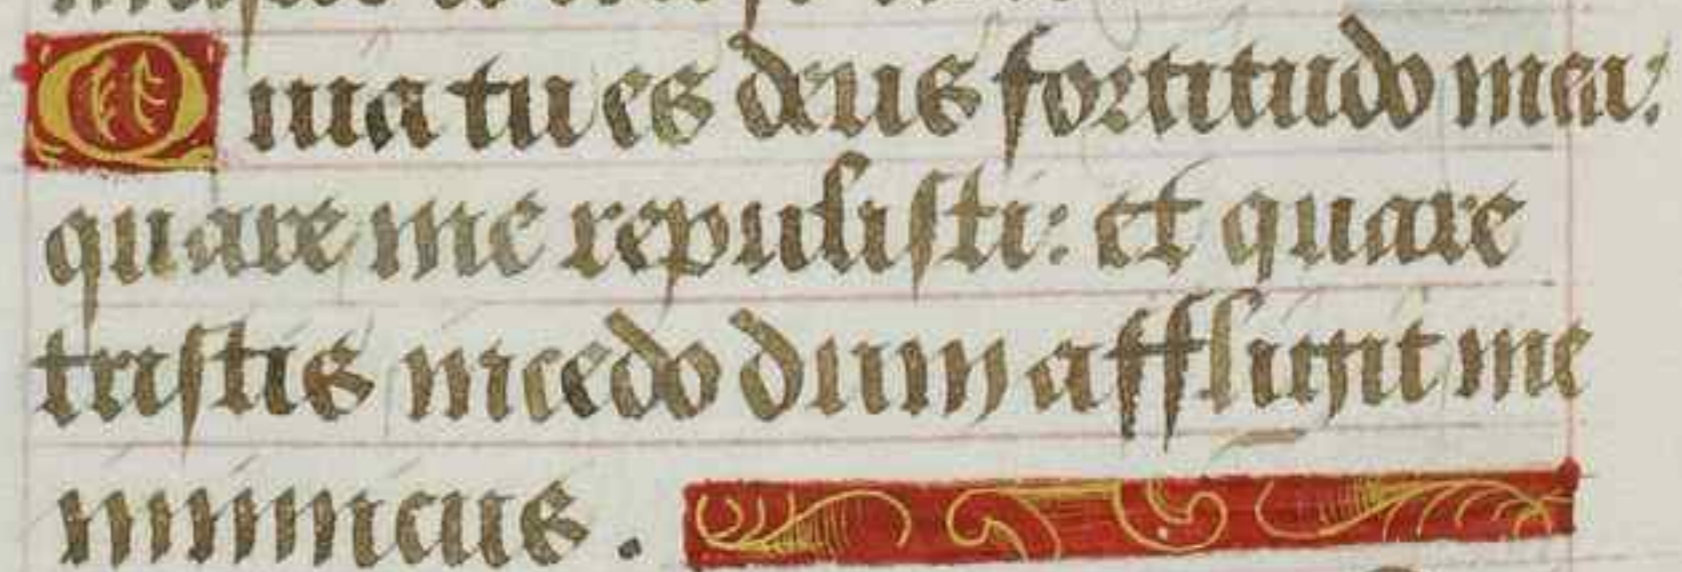 Quia tu es deus fortitudo mea:
quare me repulisti: et quare
tristis incedo dum affligit me
inimicus.